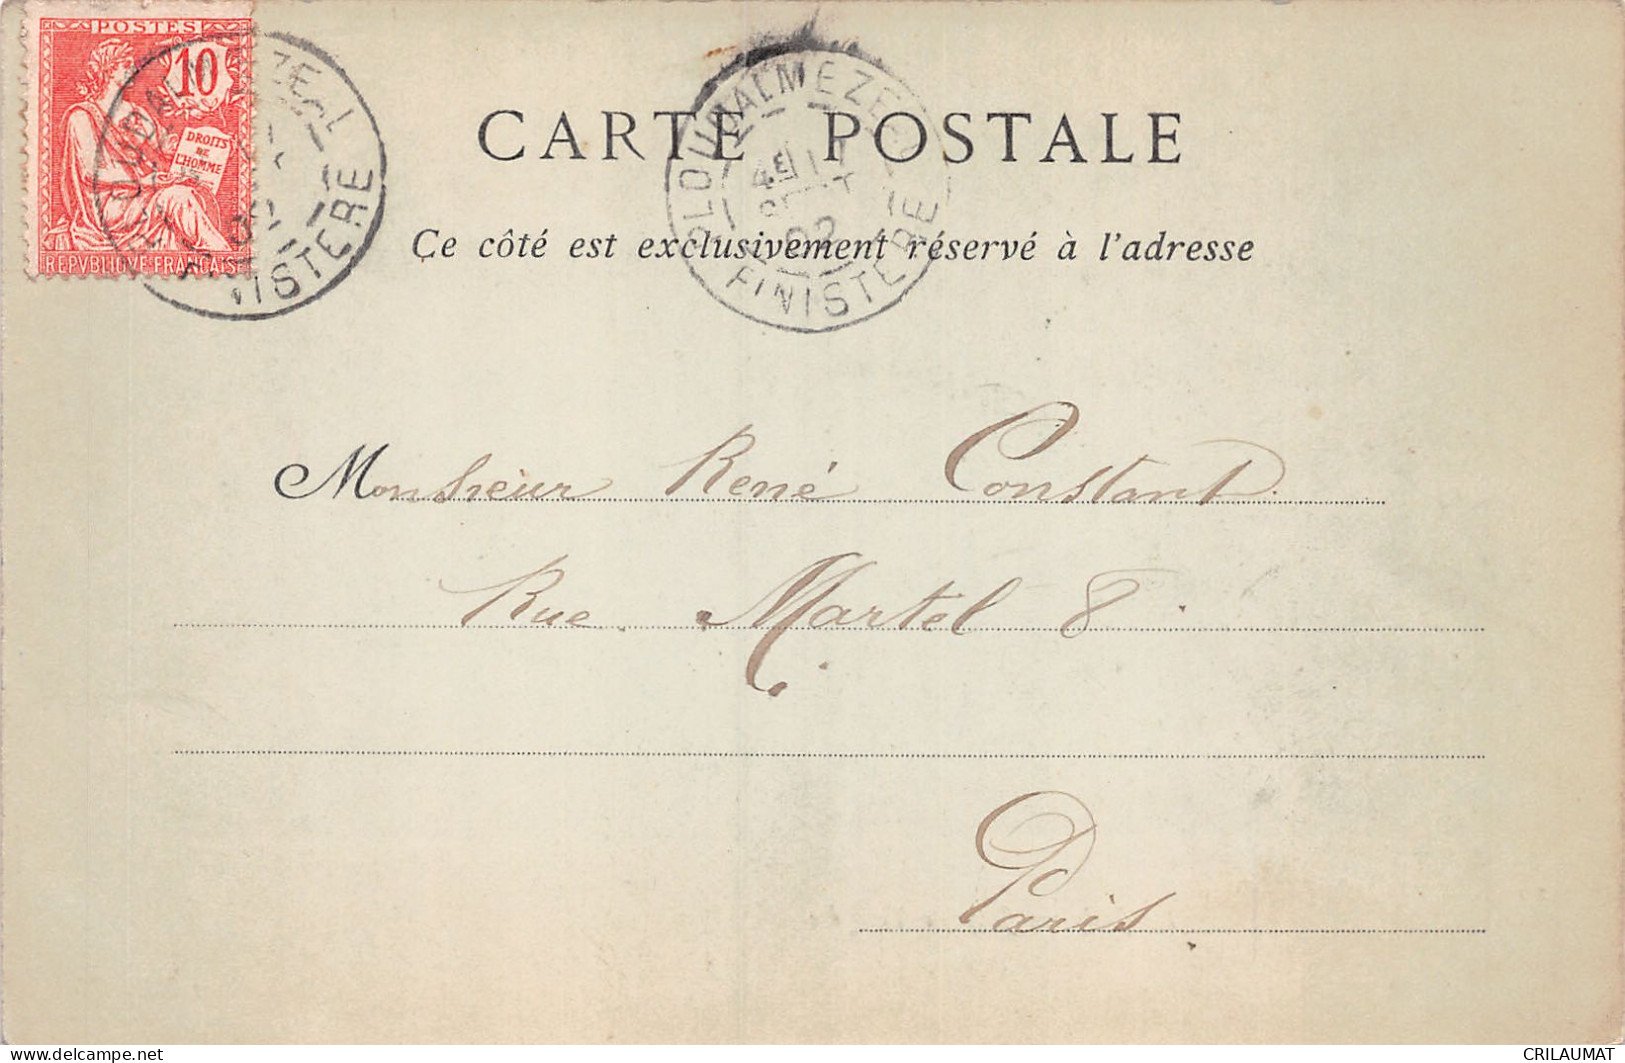 POSTES
10
DROITS
DE
L'HOMME
REPVBLIQVE FRANÇAISE
PLOUDALMEZEL
FINISTERE
CARTE POSTALE
PLOUDALMEZEL
02
FINISTERE
Ce côté est exclusivement réservé à l'adresse
Monsieur René Constant
Rue Martel 8
Paris
delcampe.net
CRILAUMAT